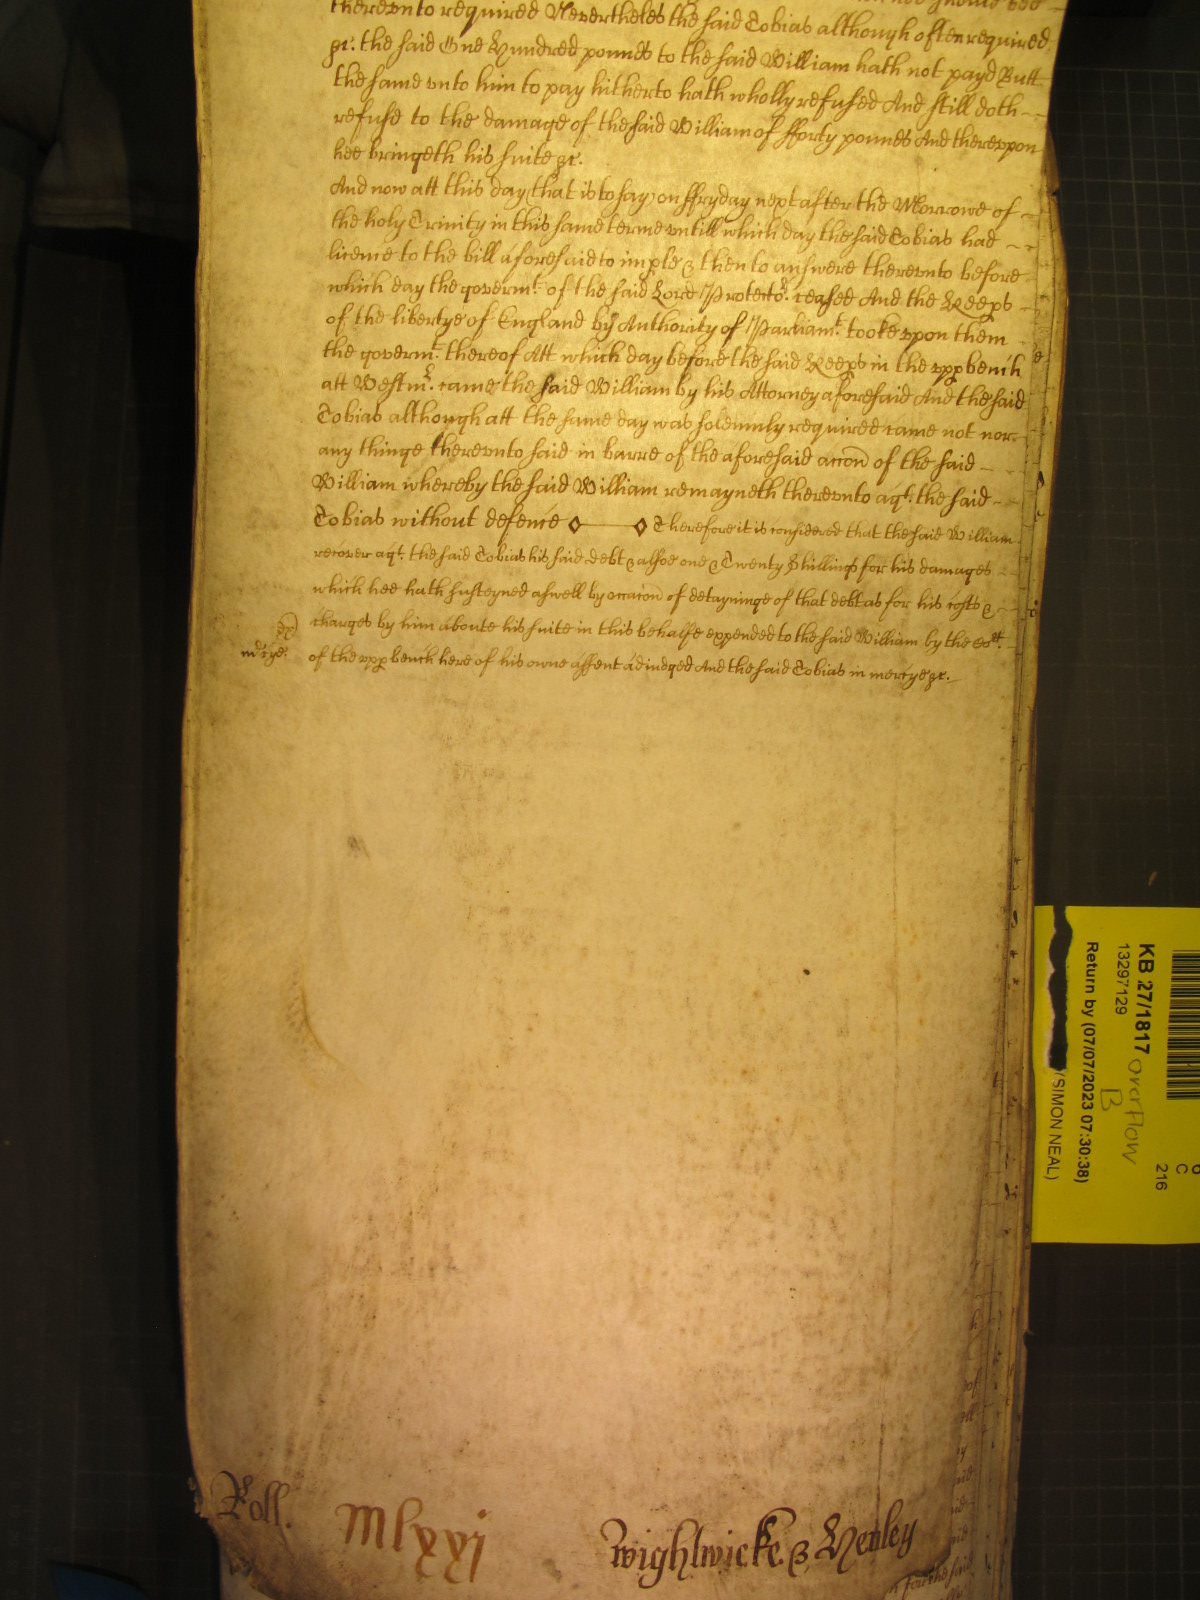 therevnto required Nevertheles the said Tobias although often required
&c: the said One Hundred pounds to the said William hath not payd Butt
the same vnto him to pay hitherto hath wholly refused And still doth
refuse to the damage of the said William of fforty pounds And therevpon
hee bringeth his suite &c.
And now att this day that is to say on ffryday next after the Morrowe of
the holy Trinity in this same terme vntill which day the said Tobias had
licence to the bill aforesaid to imple & then to answere therevnto before
which day the governmt. of the said Lord Protector. ceased And the Keeps
of the libertye of England by Authority of Parliamt. tooke vpon them
the govermt. thereof Att which day before the said Keeps in the vpp bench
att Westmr. came the said William by his Attorney aforesaid And the said
Tobias although att the same day was solemnly required came not nor
any thinge therevnto said in barre of the aforesaid accon of the said
William whereby the said William remayneth therevnto agt. the said
Tobias without defence Therefore it is considered that the said William
recover agt. the said Tobias his said debt & alsoe one & Twenty Shillings for his damages
which hee hath susteyned aswell by occacon of deteyninge of that debt as for his costs &
charges by him aboute his suite in this behalfe expended to the said William by the Cort.
mcye.
of the vpp bench here of his owne assent adiudged And the said Tobias in mercye &c.
Roll. Mlxxj Wightwicke & Henley
KB 27/1817 overflow
B
13297129
Return by (07/07/2023 07:30:38)
(SIMON NEAL)
C
216